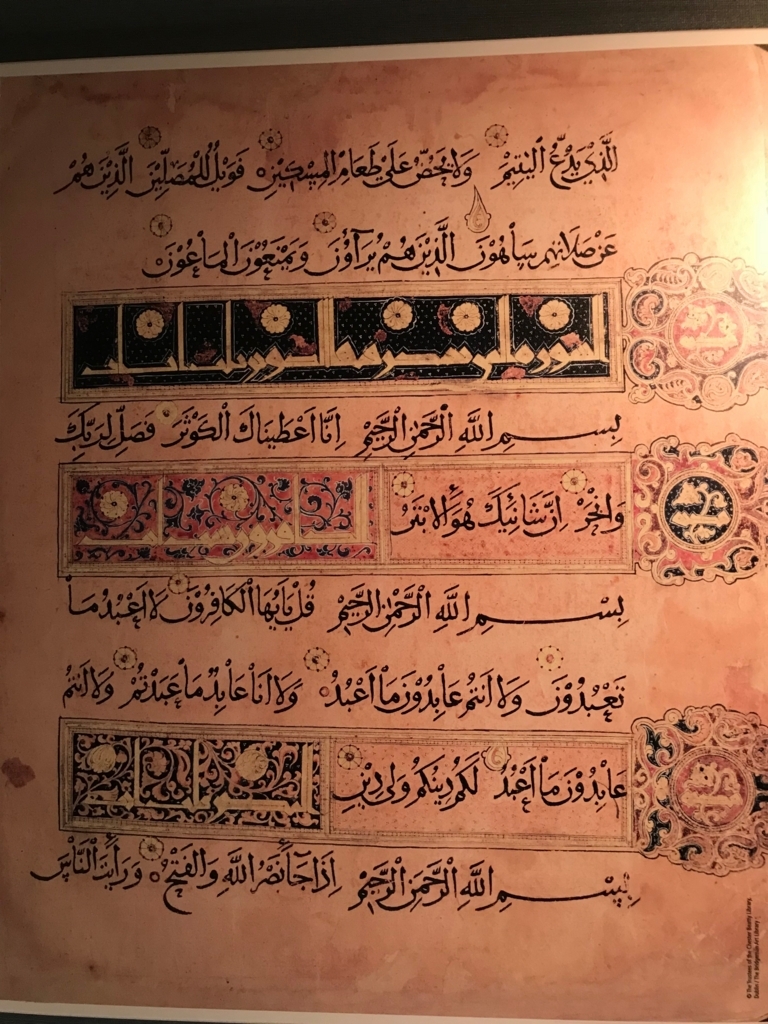 الَّذِي يَدُعُّ الْيَتِيمَ وَلَا يَحُضُّ عَلَى طَعَامِ الْمِسْكِينِ فَوَيْلٌ لِلْمُصَلِّينَ الَّذِينَ هُمْ
عَنْ صَلَاتِهِمْ سَاهُونَ الَّذِينَ هُمْ يُرَآؤُنَ وَيَمْنَعُونَ الْمَاعُونَ
بِسْمِ اللَّهِ الرَّحْمَنِ الرَّحِيمِ إِنَّا أَعْطَيْنَاكَ الْكَوْثَرَ فَصَلِّ لِرَبِّكَ
وَانْحَرْ إِنَّ شَانِئَكَ هُوَ الْأَبْتَرُ
بِسْمِ اللَّهِ الرَّحْمَنِ الرَّحِيمِ قُلْ يَأَيُّهَا الْكَافِرُونَ لَا أَعْبُدُ مَا
تَعْبُدُونَ وَلَا أَنْتُمْ عَابِدُونَ مَا أَعْبُدُ وَلَا أَنَا عَابِدٌ مَا عَبَدْتُمْ وَلَا أَنْتُمْ
عَابِدُونَ مَا أَعْبُدُ لَكُمْ دِينُكُمْ وَلِيَ دِينِ
بِسْمِ اللَّهِ الرَّحْمَنِ الرَّحِيمِ إِذَا جَآءَ نَصْرُ اللَّهِ وَالْفَتْحُ وَرَأَيْتَ النَّاسَ
© The Trustees of the Chester Beatty Library,
Dublin / The Bridgeman Art Library